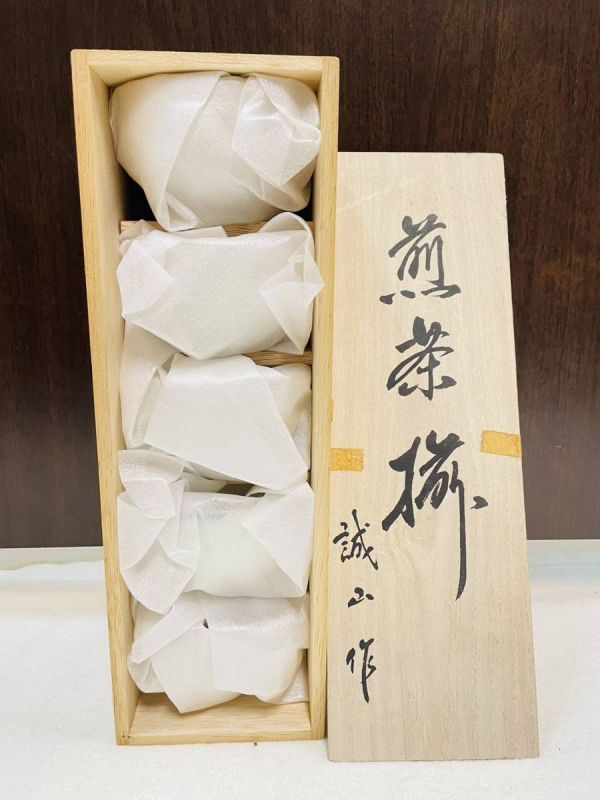 煎茶揃
誠山作